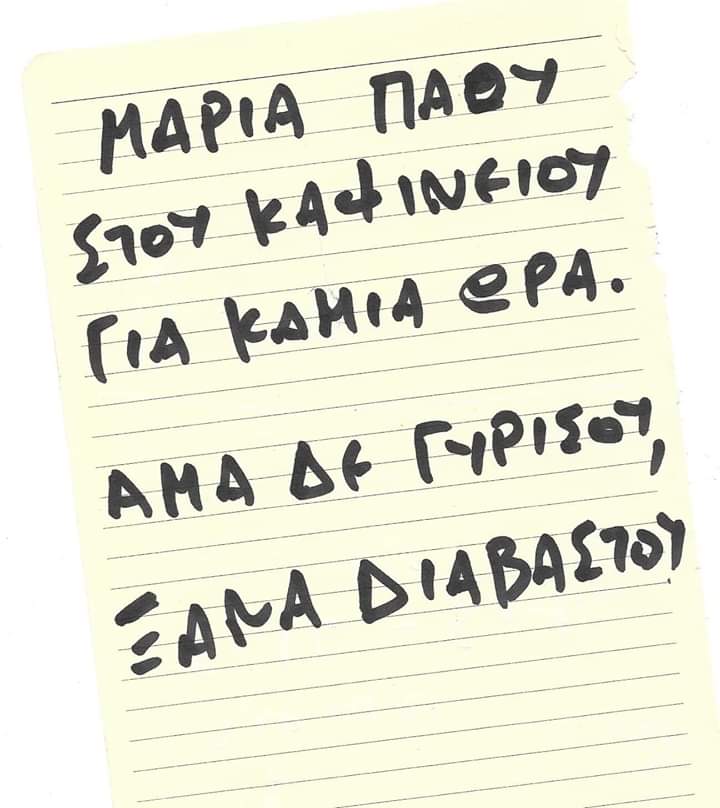 ΜΑΡΙΑ ΠΑΘΥ
ΣΤΟΥ ΚΑΦΙΝΕΙΟΥ
ΓΙΑ ΚΑΜΙΑ ΩΡΑ.
ΑΜΑ ΔΕ ΓΥΡΙΣΟΥ,
ΞΑΝΑ ΔΙΑΒΑΣΤΟΥ